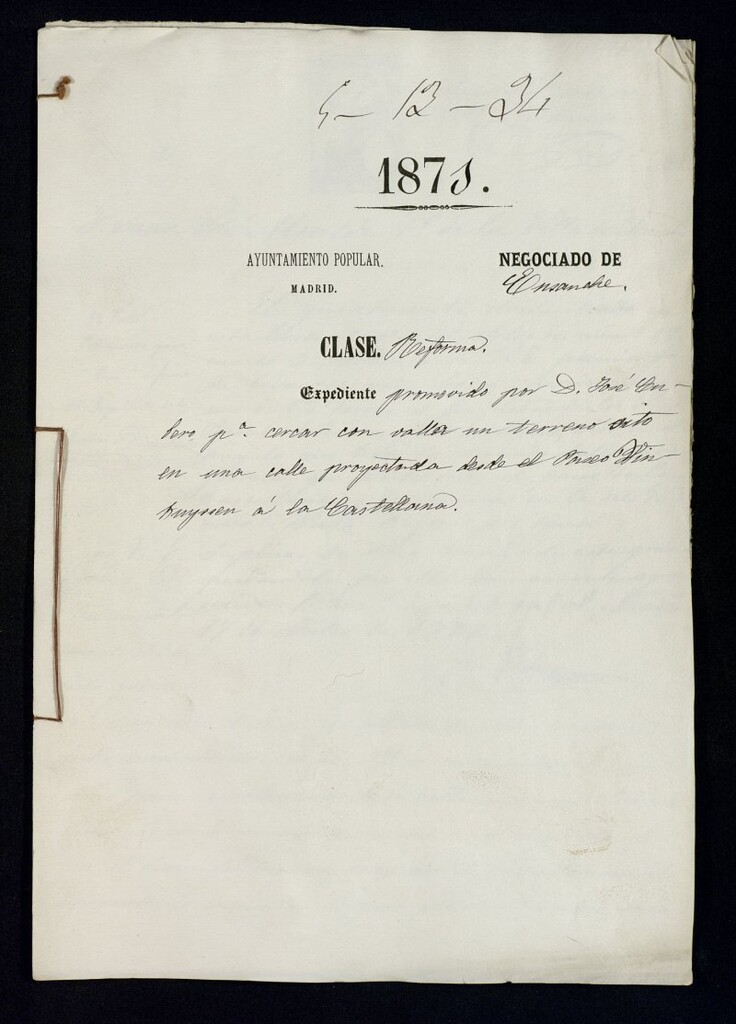 5 - 13 - 34
1871.
AYUNTAMIENTO POPULAR.
MADRID.
NEGOCIADO DE
Ensanche.
CLASE. Reforma.
Expediente promovido por D. José
pª. cercar con valla un terreno sito
en una calle proyectada desde el Paseo Win-
huyssen á la Castellana.